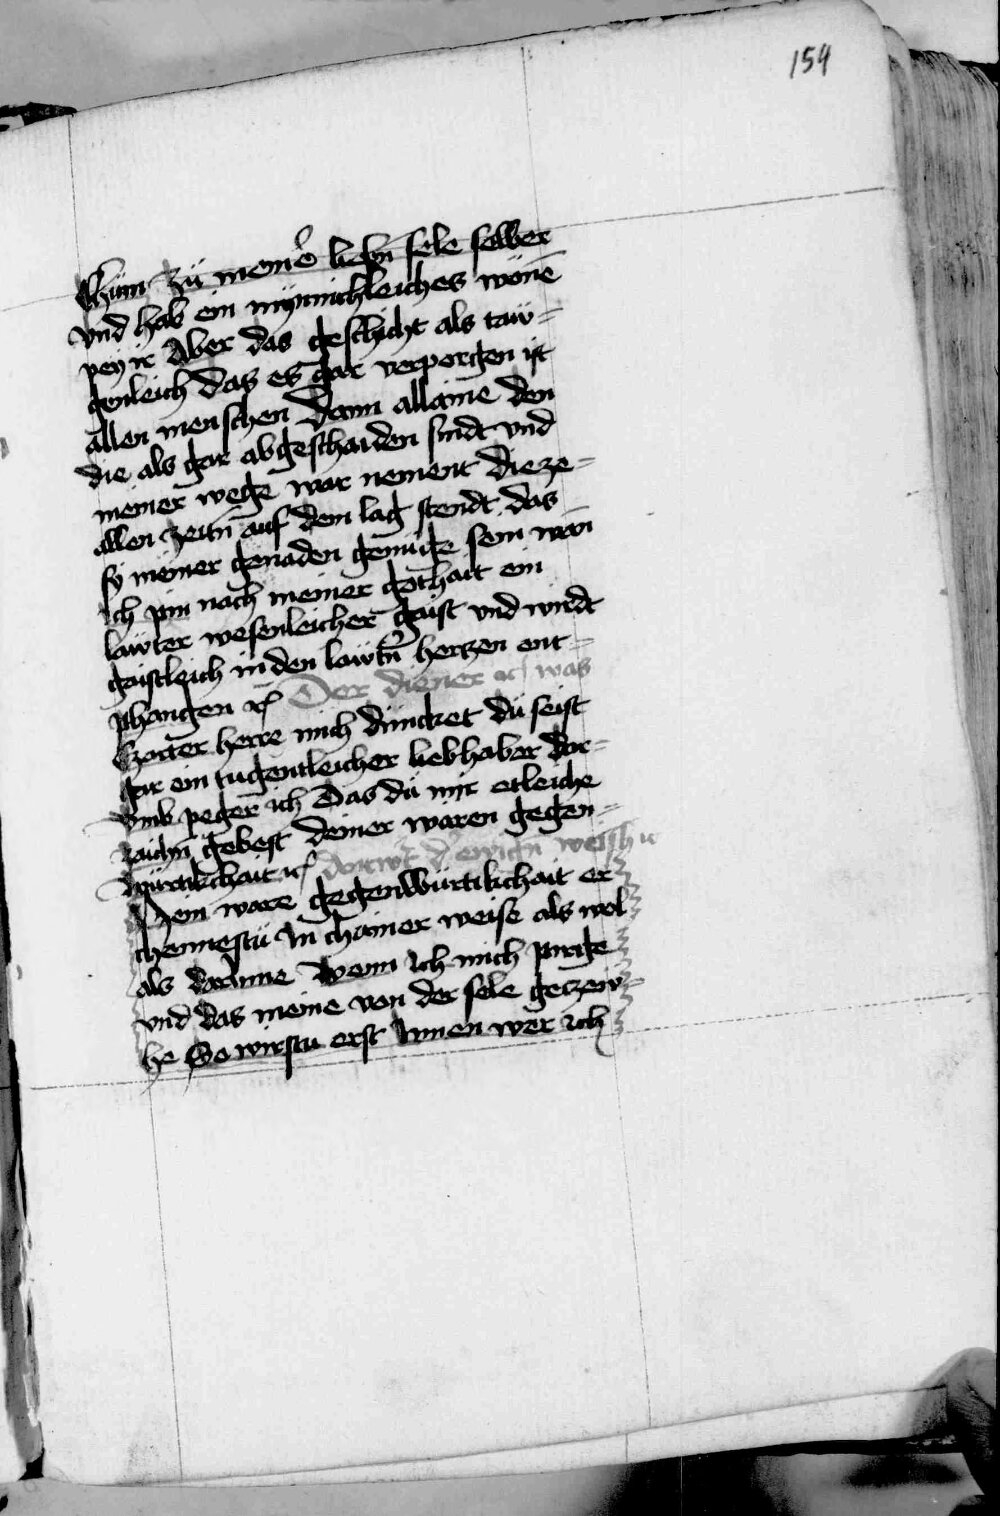 154
Chüm zü meiner liebn̄ sele selber
vnd hab ein mynnichleiches wonē
pey ir Aber das geschicht als taw-
genleich das es gar verporgen ist
allen menschen Dann allaine den
die als gar abgeschaiden sindt vnd
meiner wege war nement die ze-
allen zeitn̄ auf dem lag stendt das
sy meiner genaden genüge sein wan̄
ich pin nach meiner gothait ein
lawter wesenleicher gaist vnd wirdt
gaistleich in den lawtn̄ herczen ent-
phangen ꝛc Der diener ꝛc was
Zarter herre mich düncket dü seist
gar ein tugentleicher liebhaber dar-
vmb peger ich Das dü mir etleiche
zaichn̄ gebest deiner waren gegen-
würtikchait ꝛc Antwt̄ d ewign̄ weish ꝛc
Mein ware gegenwürtikchait er
chennestü in chainer weise als wol
als darinne wenn ich mich pirge
vnd das meine von der sele geczew-
he So wirstu erst innen wer ich